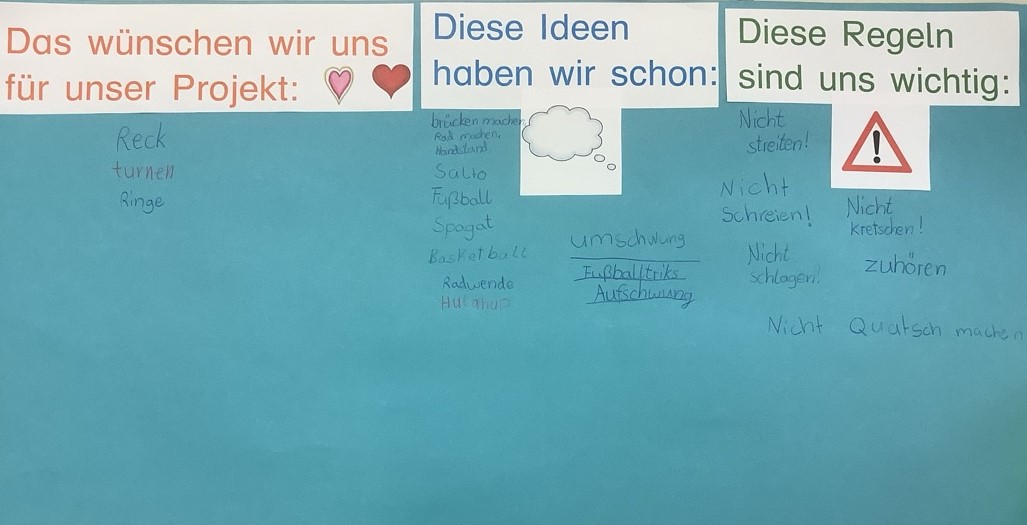 Das wünschen wir uns
für unser Projekt:
Reck
turnen
Ringe
Diese Ideen
haben wir schon:
brücken machen,
Rad machen,
Handstand
Salto
Fußball
Spagat
Basketball
Radwende
Hulahup
umschwung
Fußballtriks
Aufschwung
Diese Regeln
sind uns wichtig:
Nicht
streiten!
Nicht
Schreien!
Nicht
schlagen!
Nicht
kretschen!
zuhören
Nicht Quatsch machen